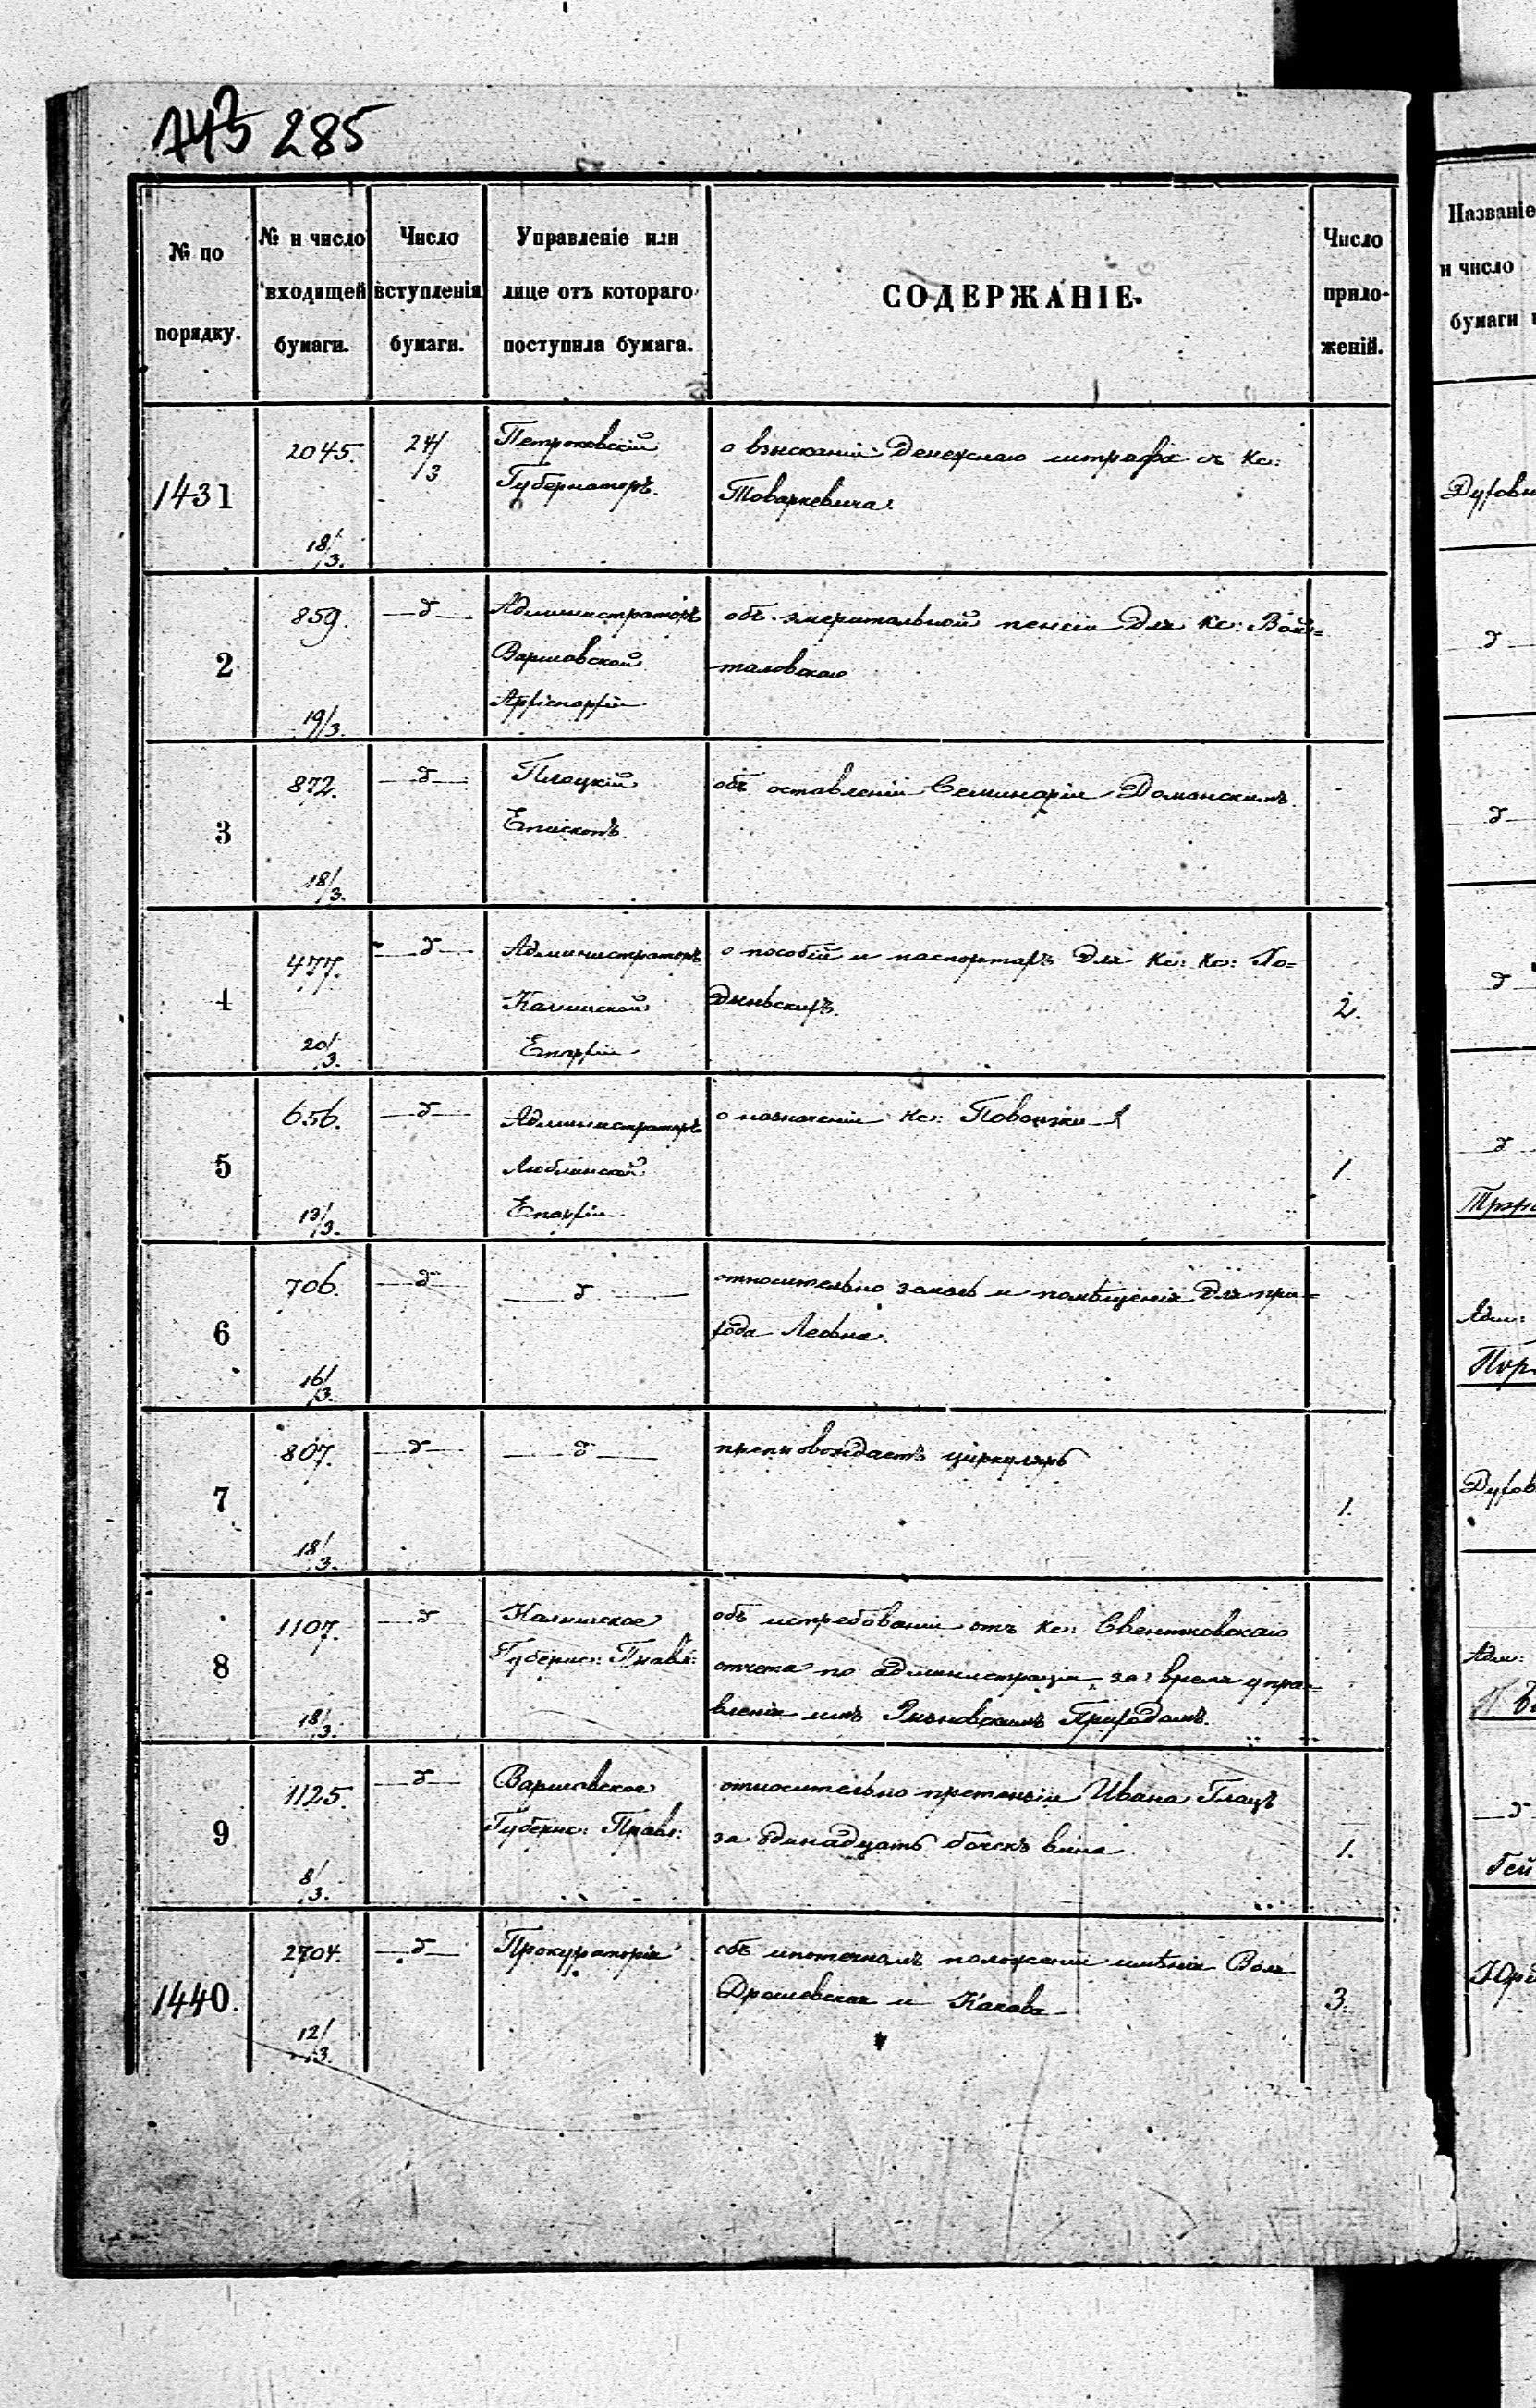 285
№ по
порядку.
№ и число
входящей
бумаги.
Число
вступленія
бумаги.
Управленіе или
лице отъ котораго
поступила бумага.
СОДЕРЖАНІЕ.
Число
прило-
женій.
1431
2045.
18/3.
24/3
Петроковскій
Губернаторъ.
о взысканіи денежнаго штрафа съ Кс:
Товаркевича.
2
859.
19/3.
—д—
Администраторъ
Варшавской
Архіепархіи
объ эмеритальной пенсіи для Кс: Вой=
таловскаго
3
872.
18/3.
—д—
Плоцкій
Епископъ.
объ оставленіи Семинаріи Доманскимъ.
4
477.
20/3.
—д—
Администраторъ
Калишской
Епархіи
о пособіи и паспортахъ для Кс: Кс: Хо=
дыньскихъ.
2.
5
656.
13/3.
—д—
Администраторъ
Люблинской
Епархіи
о назначеніи Кс:
1.
6
706.
16/3.
—д—
—д—
относительно земель и помѣщенія для при=
хода
7
807.
18/3.
—д—
—д—
препровождаетъ циркуляръ
1.
8
1107.
18/3.
—д—
Калишское
Губернс: Правл:
объ истребованіи отъ Кс: Свентковскаго
отчета по администраціи за время упра=
вленія имъ Приходомъ.
9
1125.
8/3.
—д—
Варшавское
Губернс: Правл:
относительно претензіи Ивана Глацъ
за одинадцать бочекъ вина
1.
1440.
2704.
12/3.
—д—
Прокураторія
объ ипотечномъ положеніи имѣнія Воля
и
3.
Названіе
и число
бумаги
—д—
Адм:
Адм:
—д—